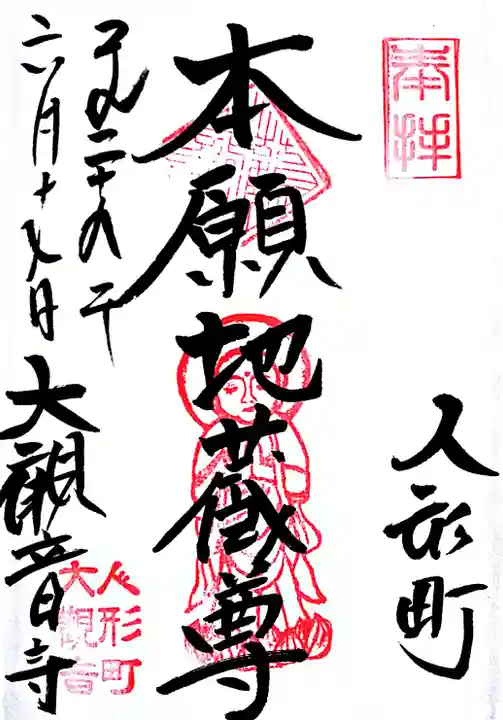 奉拝
人形町
本願地蔵尊
平成二十八年
六月十七日
大観音寺
人形町
大観音